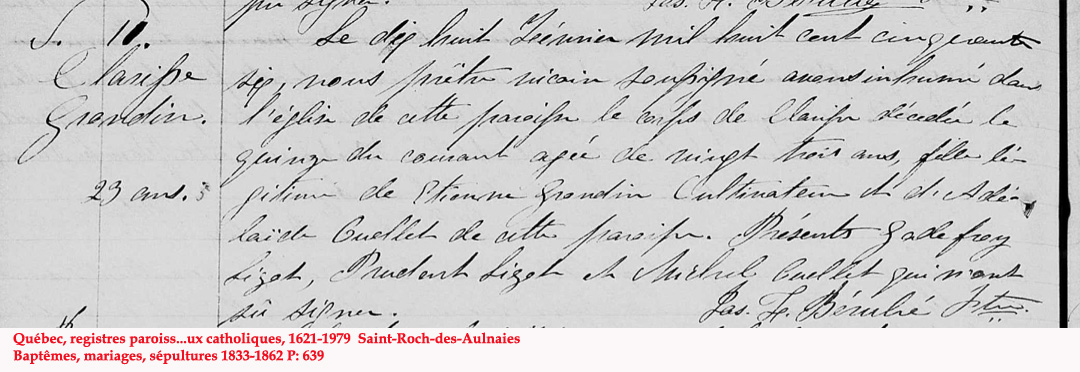 pu signer.
S. 10.
Clarisse
Grondin.
23 ans.
Le dix huit Février mil huit cent cinquante
six, nous prêtre vicaire soussigné avons inhumé dans
l'église de cette paroisse le corps de Clarisse décédée le
quinze du courant agée de vingt trois ans, fille lé-
gitime de Etienne Grondin Cultivateur et de Adé-
laïde Ouellet de cette paroisse. Présents Godefroy
Lizot, Prudent Lizot et Michel Ouellet qui n'ont
sû signer. Jos. H. Bérubé Ptre.
Québec, registres paroiss...ux catholiques, 1621-1979 Saint-Roch-des-Aulnaies
Baptêmes, mariages, sépultures 1833-1862 P: 639